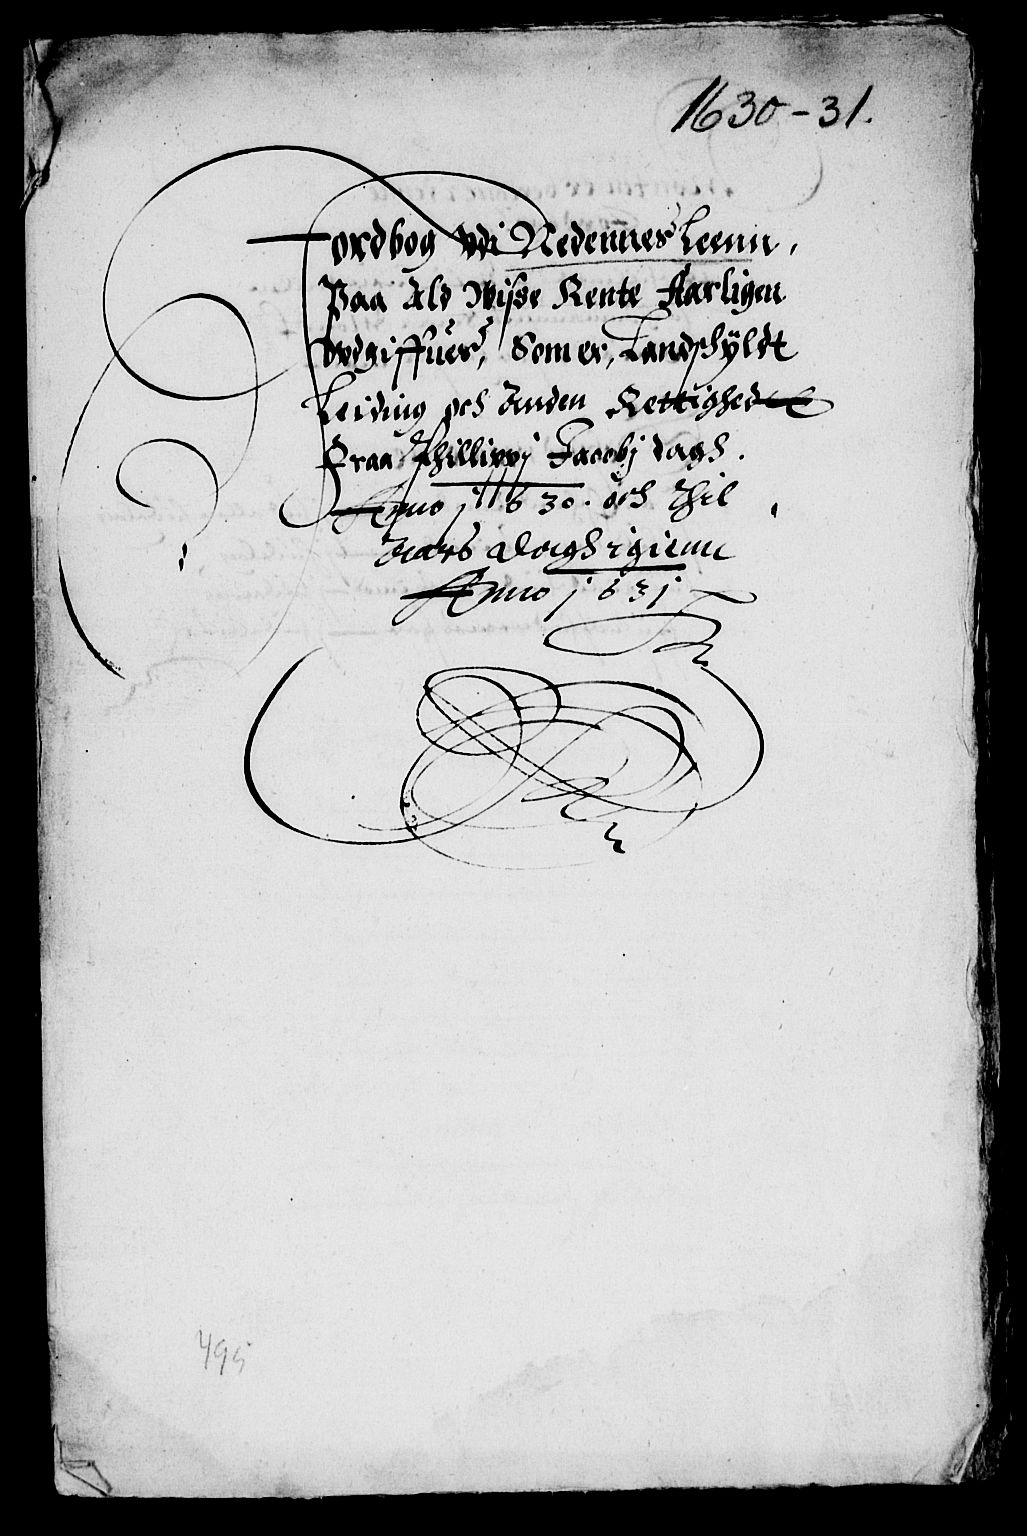 1630-31.
Jordbog vdi Nedennes Leenn,
Paa Ald Wisse Rente Aarligen
vdgiffues, Som er, Landskyldt
Leiding och Anden Rettighed
Fraa Phillippj Jacobj dagh.
Anno j630. och thil
Aars Dagh igienn
Anno j63j
495